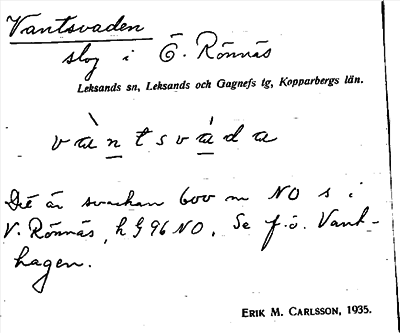 Vantsvaden
slog i Ö. Rönnäs
Leksands sn, Leksands och Gagnefs tg, Kopparbergs län.
vàntsváda
Det är svackan 600 m NO s i
V. Rönnäs, h § 96 NO. Se f.ö. Vant-
hagen.
ERIK M. CARLSSON, 1935.